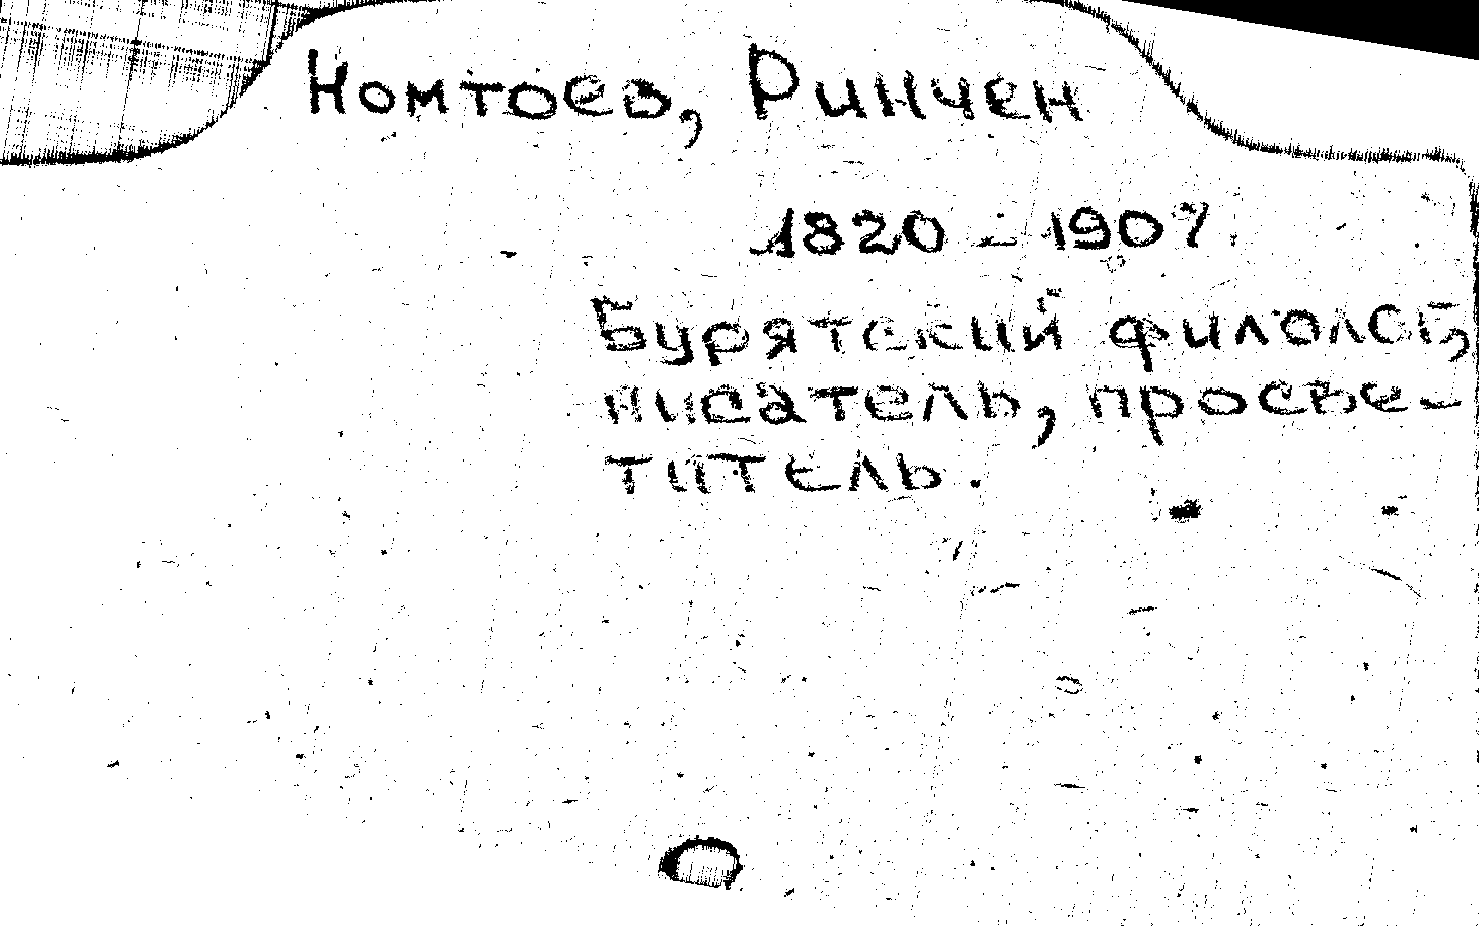 Номтоев, Ринчен
1820 - 1907.
Бурятский филолог,
писатель, просве-
титель.